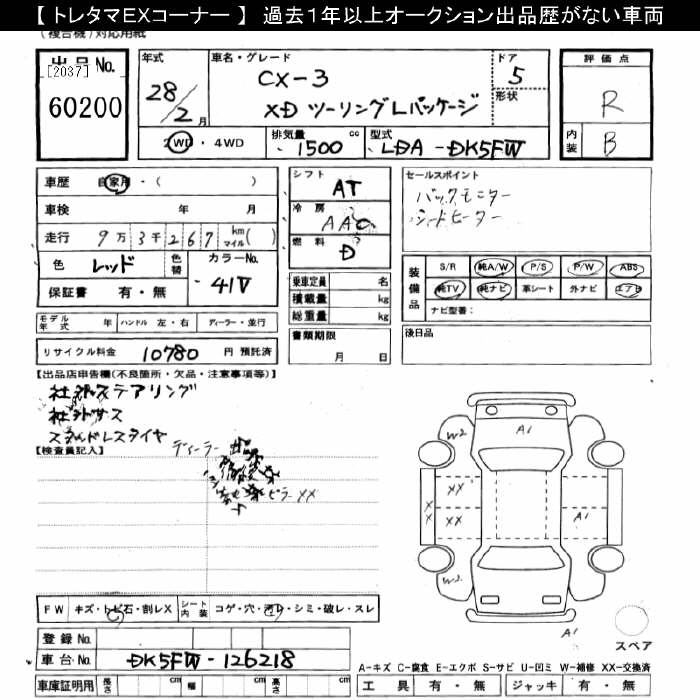 【 トレタマＥＸコーナー 】 過去１年以上オークション出品歴がない車両
(複合機)対応用紙
出品No.
[2037]
60200
年式
28/2月
車名・グレード
CX-3
XD ツーリングLパッケージ
ドア
5
形状
評価点
R
内装
B
2WD・4WD
排気量
1500 cc
型式
LDA-DK5FW
車歴 自家用・( )
車検 年 月
走行 9万3千267 km マイル( )
色 レッド 色替
カラーNo.
41V
保証書 有・無
シフト
AT
冷房
AAC
燃料
D
乗車定員 名
積載量 kg
総重量 kg
書類期限
月 日
セールスポイント
バックモニター
シートヒーター
装備品
S/R 純A/W P/S P/W ABS
純TV 純ナビ 革シート 外ナビ エアB
ナビ型番:
後日品
モデル年式 年 ハンドル 左・右 ディーラー・並行
リサイクル料金 10780 円 預託済
【出品店申告欄(不良箇所・欠品・注意事項等)】
社外ステアリング
社外サス
スタッドレスタイヤ
【検査員記入】
ディーラー
ピラーXX
W2
A1
XX
XX
X
X
A1
W2
A1
FW キズ・トビ石・割レX
シート内装 コゲ・穴・汚レ・シミ・破レ・スレ
スペア
登録No.
車台No. DK5FW-126218
A-キズ C-腐食 E-エクボ S-サビ U-凹ミ W-補修 XX-交換済
車庫証明用 長さ cm 幅 cm 高さ cm
工具 有・無 ジャッキ 有・無